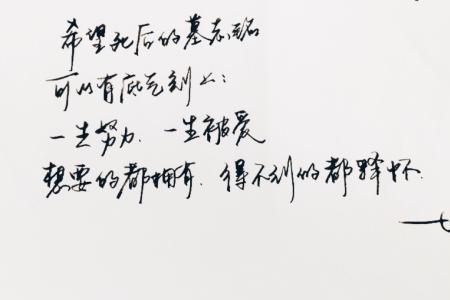 希望死后的墓志铭
可以有底气刻上：
一生努力.一生被爱
想要的都拥有.得不到的都释怀.